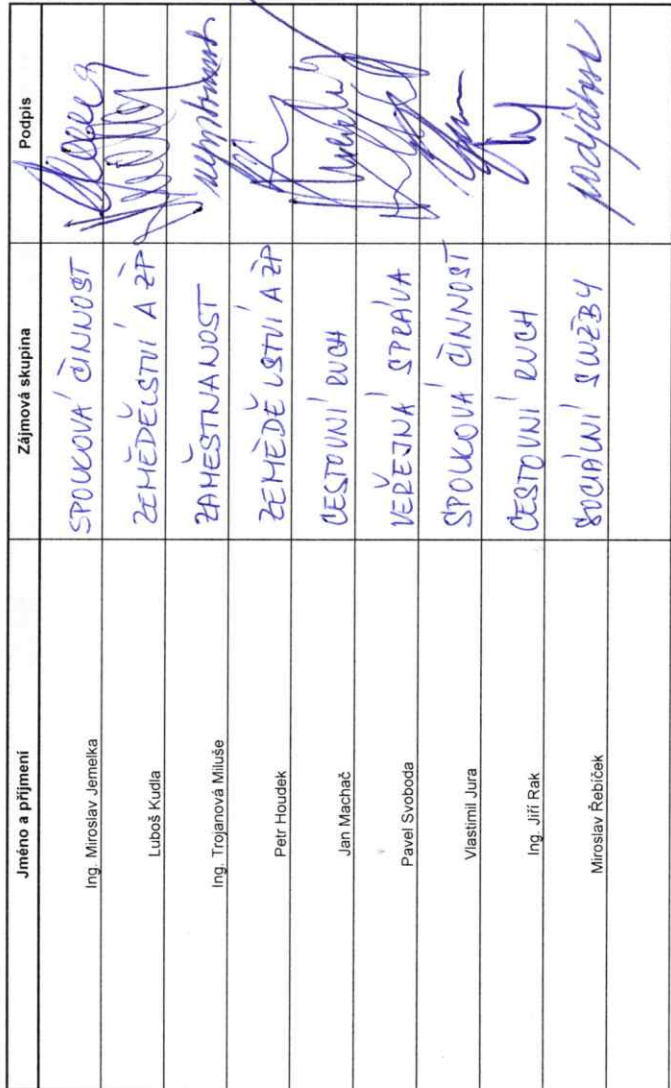 Jméno a příjmení Zájmová skupina Podpis
Ing. Miroslav Jemelka SPOLKOVÁ ČINNOST
Luboš Kudla ZEMĚDĚLSTVÍ A ŽP
Ing. Trojanová Miluše ZAMĚSTNANOST
Petr Houdek ZEMĚDĚLSTVÍ A ŽP
Jan Machač CESTOVNÍ RUCH
Pavel Svoboda VEŘEJNÁ SPRÁVA
Vlastimil Jura SPOLKOVÁ ČINNOST
Ing. Jiří Rak CESTOVNÍ RUCH
Miroslav Řebíček SOCIÁLNÍ SLUŽBY